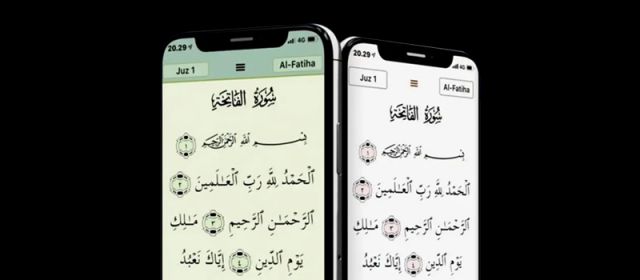 20.29 4G
Juz 1 Al-Fatiha
سُورَةُ الفَاتِحَةِ
بِسْمِ ٱللَّهِ ٱلرَّحْمَـٰنِ ٱلرَّحِيمِ ١
ٱلْحَمْدُ لِلَّهِ رَبِّ ٱلْعَـٰلَمِينَ ٢
ٱلرَّحْمَـٰنِ ٱلرَّحِيمِ ٣ مَـٰلِكِ
يَوْمِ ٱلدِّينِ ٤ إِيَّاكَ نَعْبُدُ
20.29 4G
Juz 1 Al-Fatiha
سُورَةُ الفَاتِحَةِ
بِسْمِ ٱللَّهِ ٱلرَّحْمَـٰنِ ٱلرَّحِيمِ ١
ٱلْحَمْدُ لِلَّهِ رَبِّ ٱلْعَـٰلَمِينَ ٢
ٱلرَّحْمَـٰنِ ٱلرَّحِيمِ ٣ مَـٰلِكِ
يَوْمِ ٱلدِّينِ ٤ إِيَّاكَ نَعْبُدُ